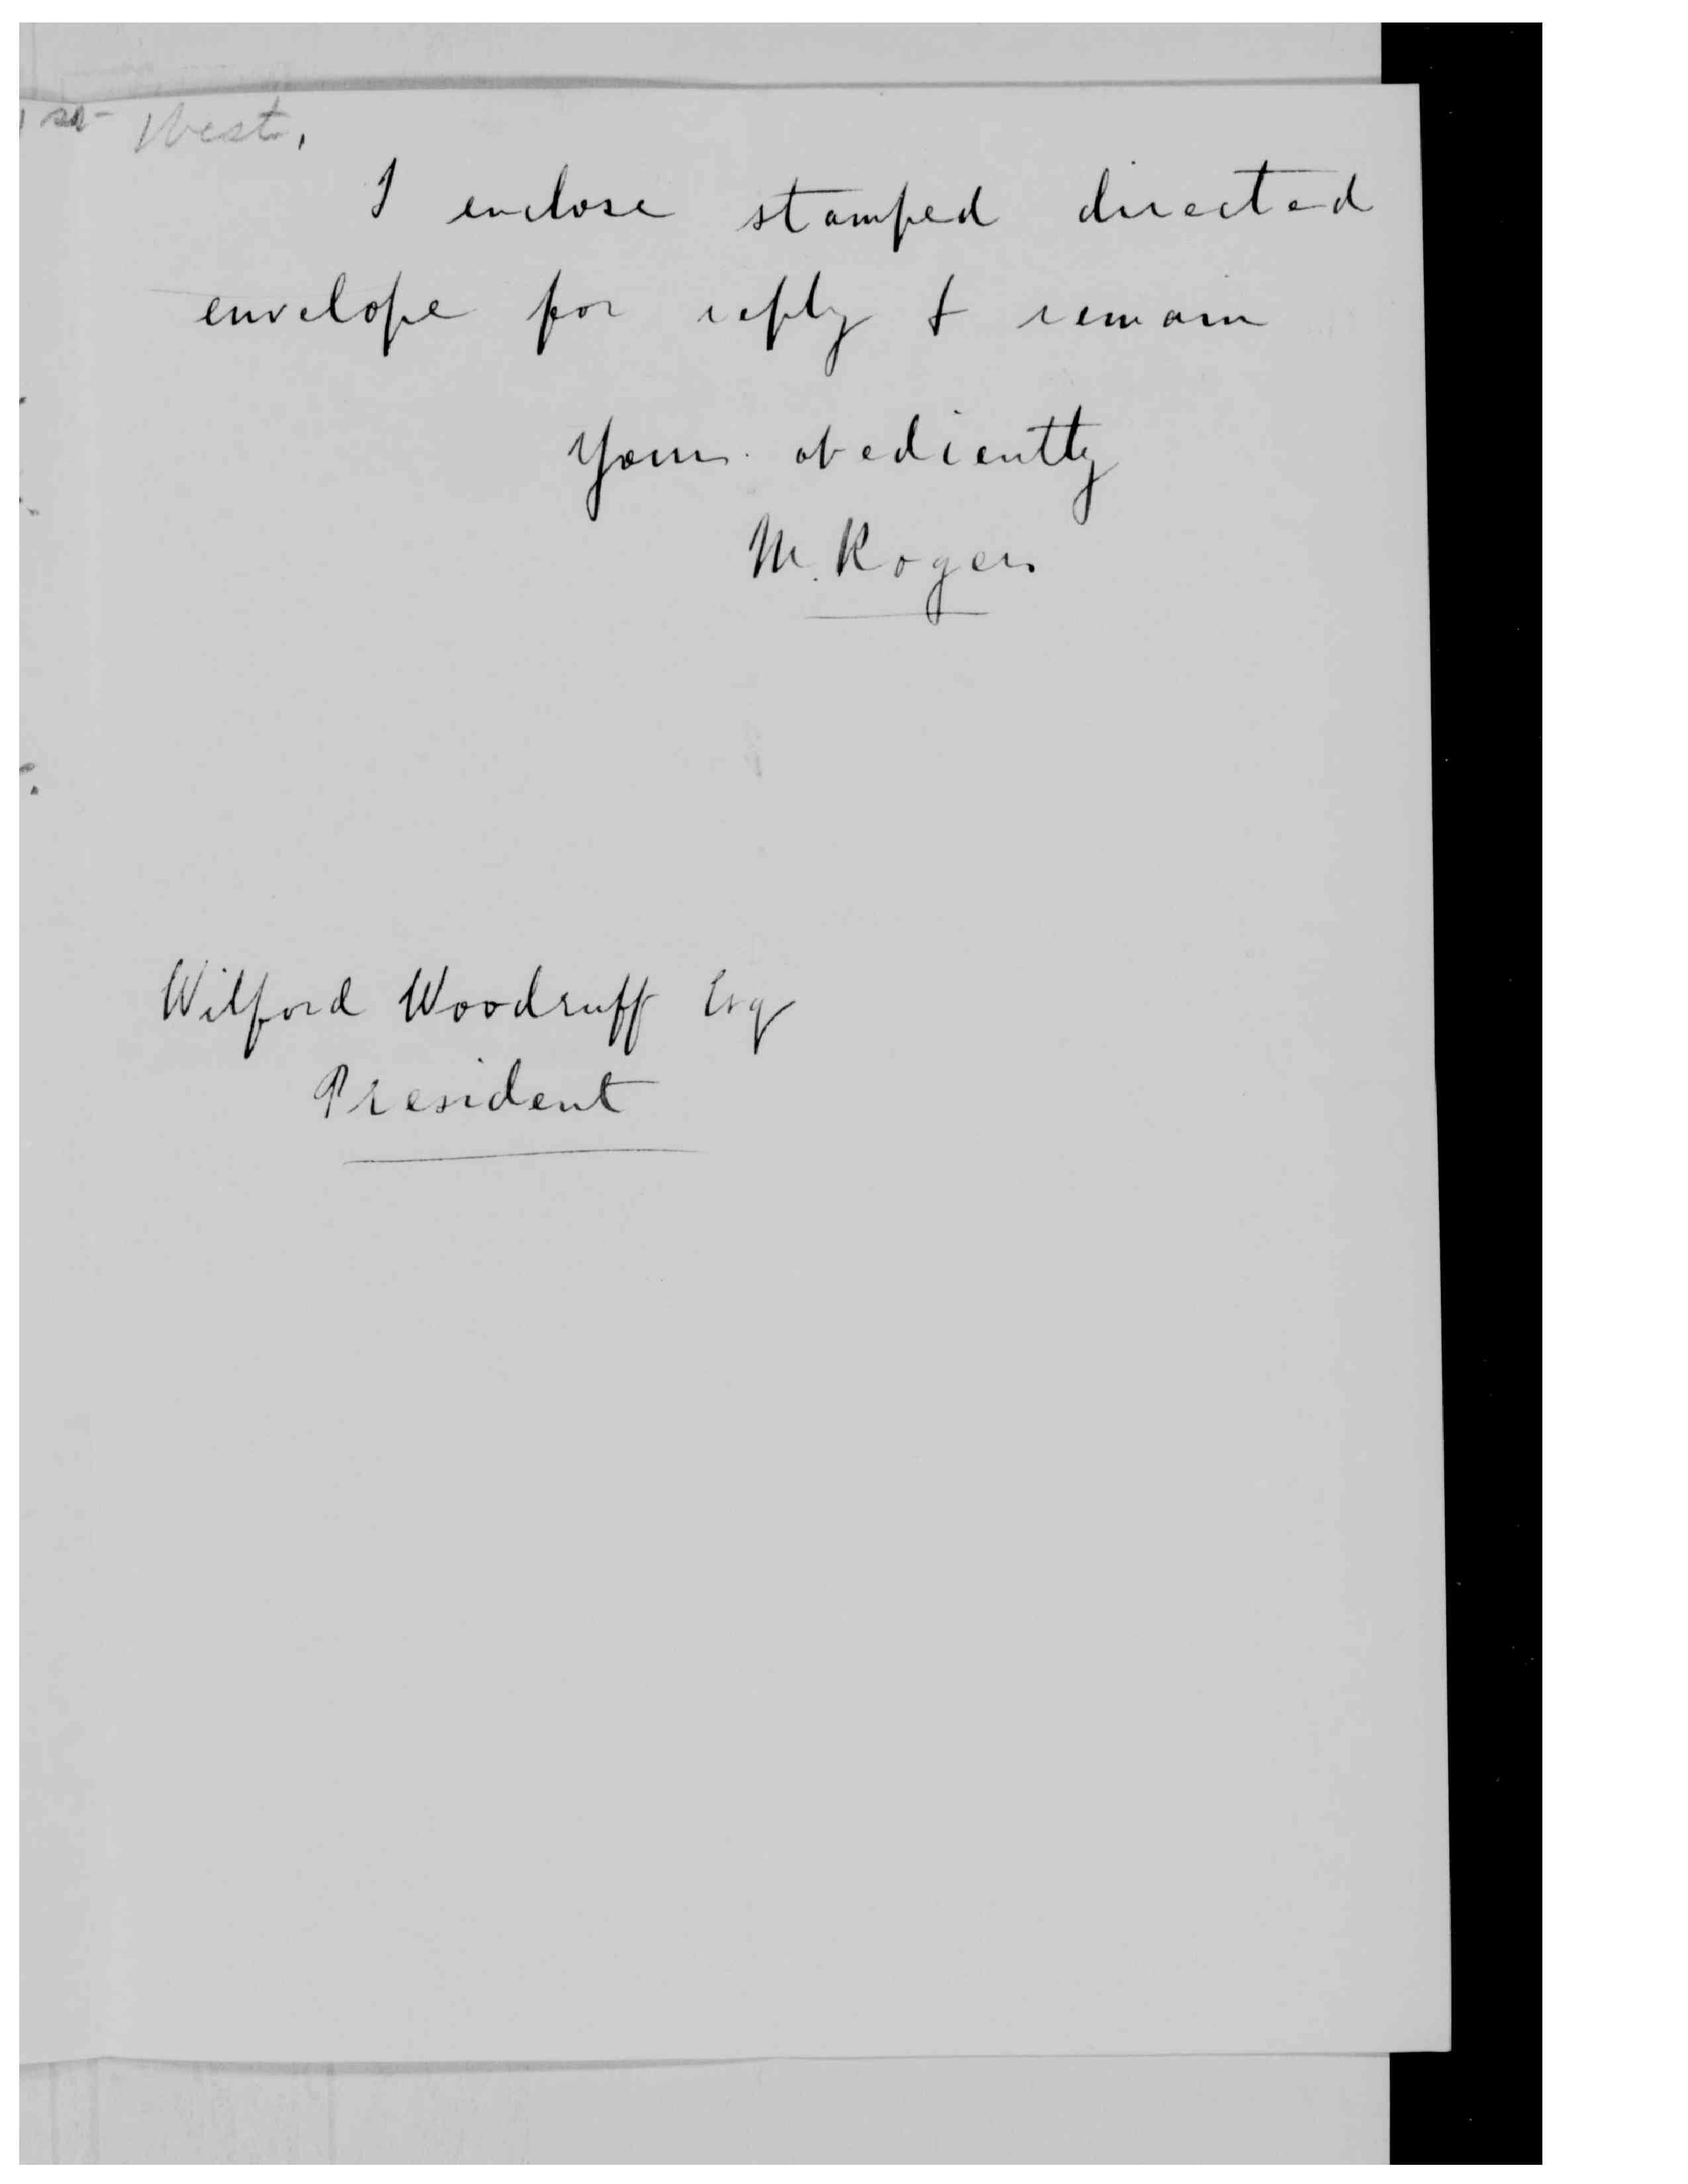 West,
I enclose stamped directed
envelope for reply & remain
Yours obediently
M. Rogers
Wilford Woodruff Esq
President